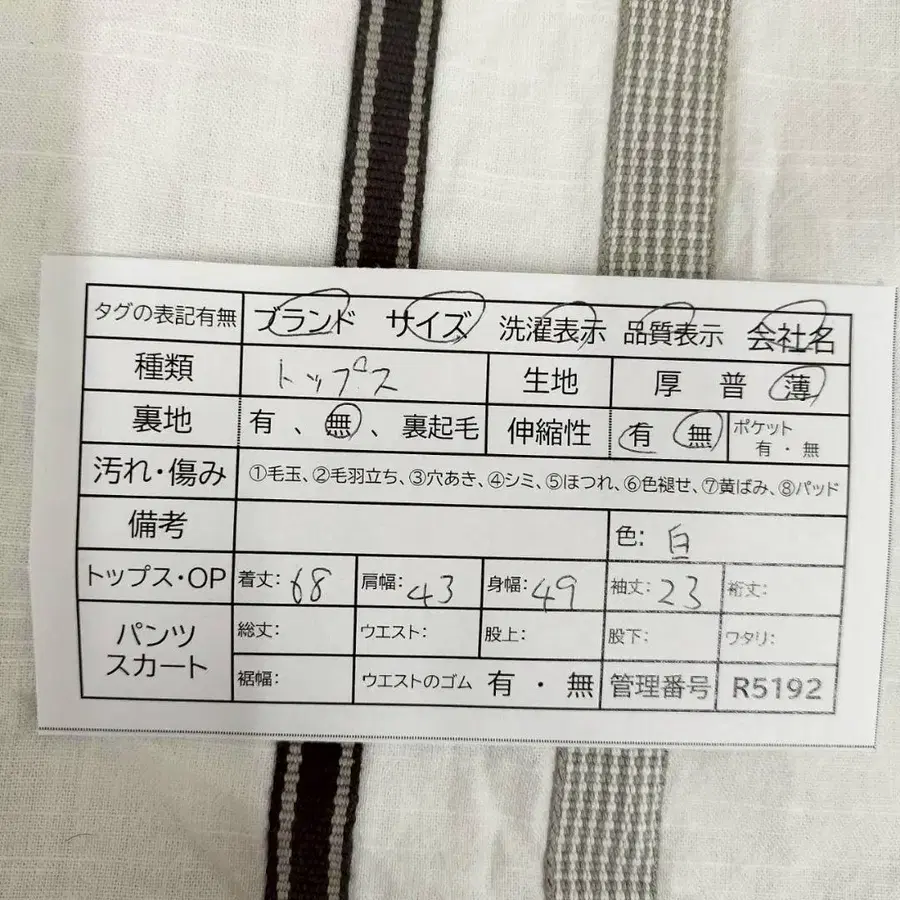 タグの表記有無 ブランド サイズ 洗濯表示 品質表示 会社名
種類 トップス 生地 厚 普 薄
裏地 有 、 無 、 裏起毛 伸縮性 有 無 ポケット 有 ・ 無
汚れ・傷み ①毛玉、②毛羽立ち、③穴あき、④シミ、⑤ほつれ、⑥色褪せ、⑦黄ばみ、⑧パッド
備考 色: 白
トップス・OP 着丈: 68 肩幅: 43 身幅: 49 袖丈: 23 裄丈:
パンツ スカート 総丈: ウエスト: 股上: 股下: ワタリ:
裾幅: ウエストのゴム 有 ・ 無 管理番号 R5192